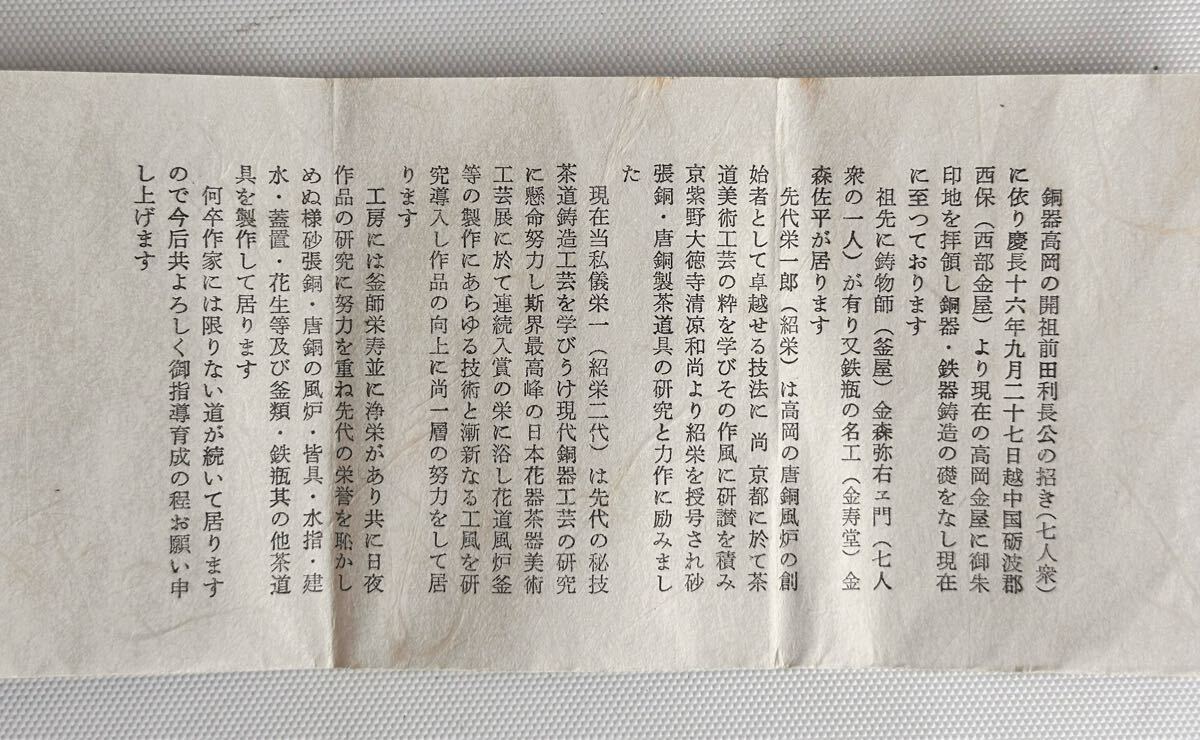 銅器高岡の開祖前田利長公の招き（七人衆）
に依り慶長十六年九月二十七日越中国砺波郡
西保（西部金屋）より現在の高岡金屋に御朱
印地を拝領し銅器・鉄器鋳造の礎をなし現在
に至つております
祖先に鋳物師（釜屋）金森弥右ヱ門（七人
衆の一人）が有り又鉄瓶の名工（金寿堂）金
森佐平が居ります
先代栄一郎（紹栄）は高岡の唐銅風炉の創
始者として卓越せる技法に尚京都に於て茶
道美術工芸の粋を学びその作風に研讃を積み
京紫野大徳寺清凉和尚より紹栄を授号され砂
張銅・唐銅製茶道具の研究と力作に励みまし
た
現在当私儀栄一（紹栄二代）は先代の秘技
茶道鋳造工芸を学びうけ現代銅器工芸の研究
に懸命努力し斯界最高峰の日本花器茶器美術
工芸展に於て連続入賞の栄に浴し花道風炉釜
等の製作にあらゆる技術と漸新なる工風を研
究導入し作品の向上に尚一層の努力をして居
ります
工房には釜師栄寿並に浄栄があり共に日夜
作品の研究に努力を重ね先代の栄誉を恥かし
めぬ様砂張銅・唐銅の風炉・皆具・水指・建
水・蓋置・花生等及び釜類・鉄瓶其の他茶道
具を製作して居ります
何卒作家には限りない道が続いて居ります
ので今后共よろしく御指導育成の程お願い申
し上げます